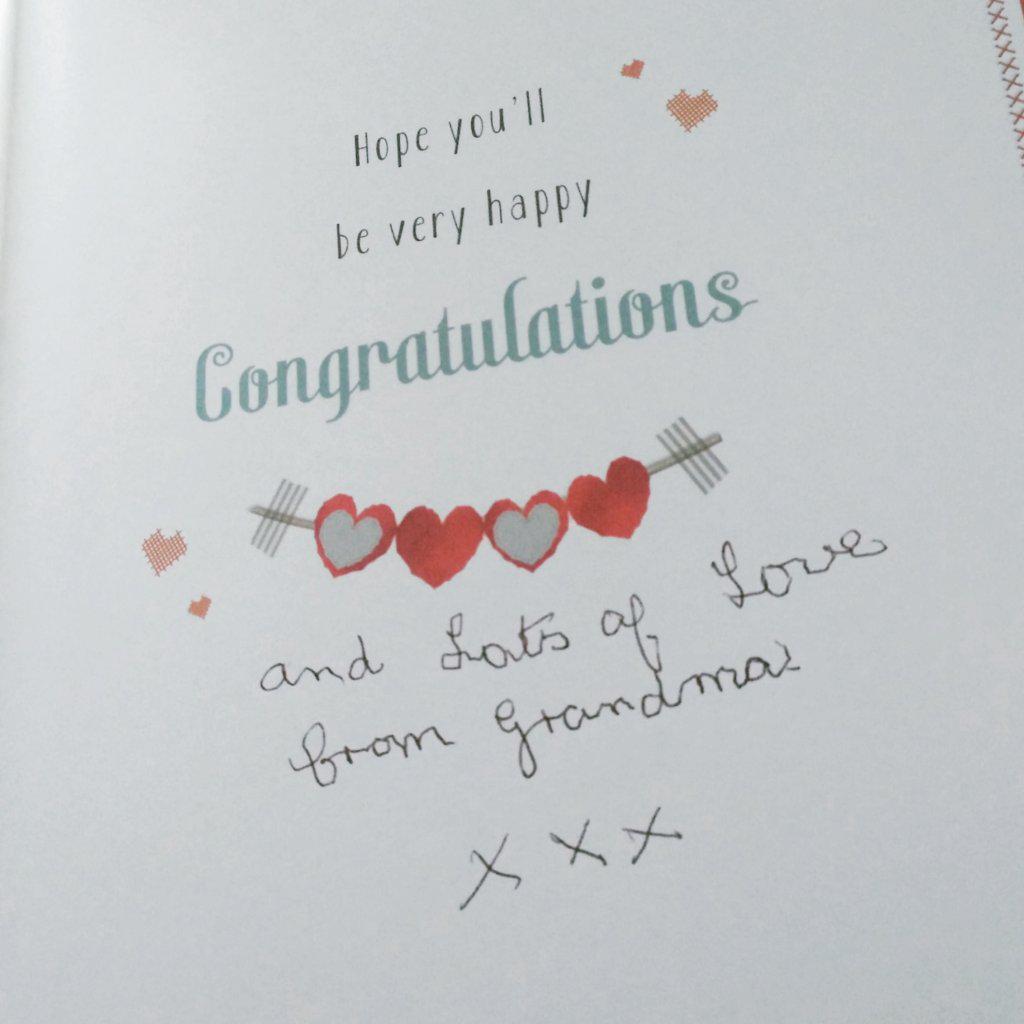 Hope you'll
be very happy
Congratulations
and Lots of Love
from Grandma
x x x